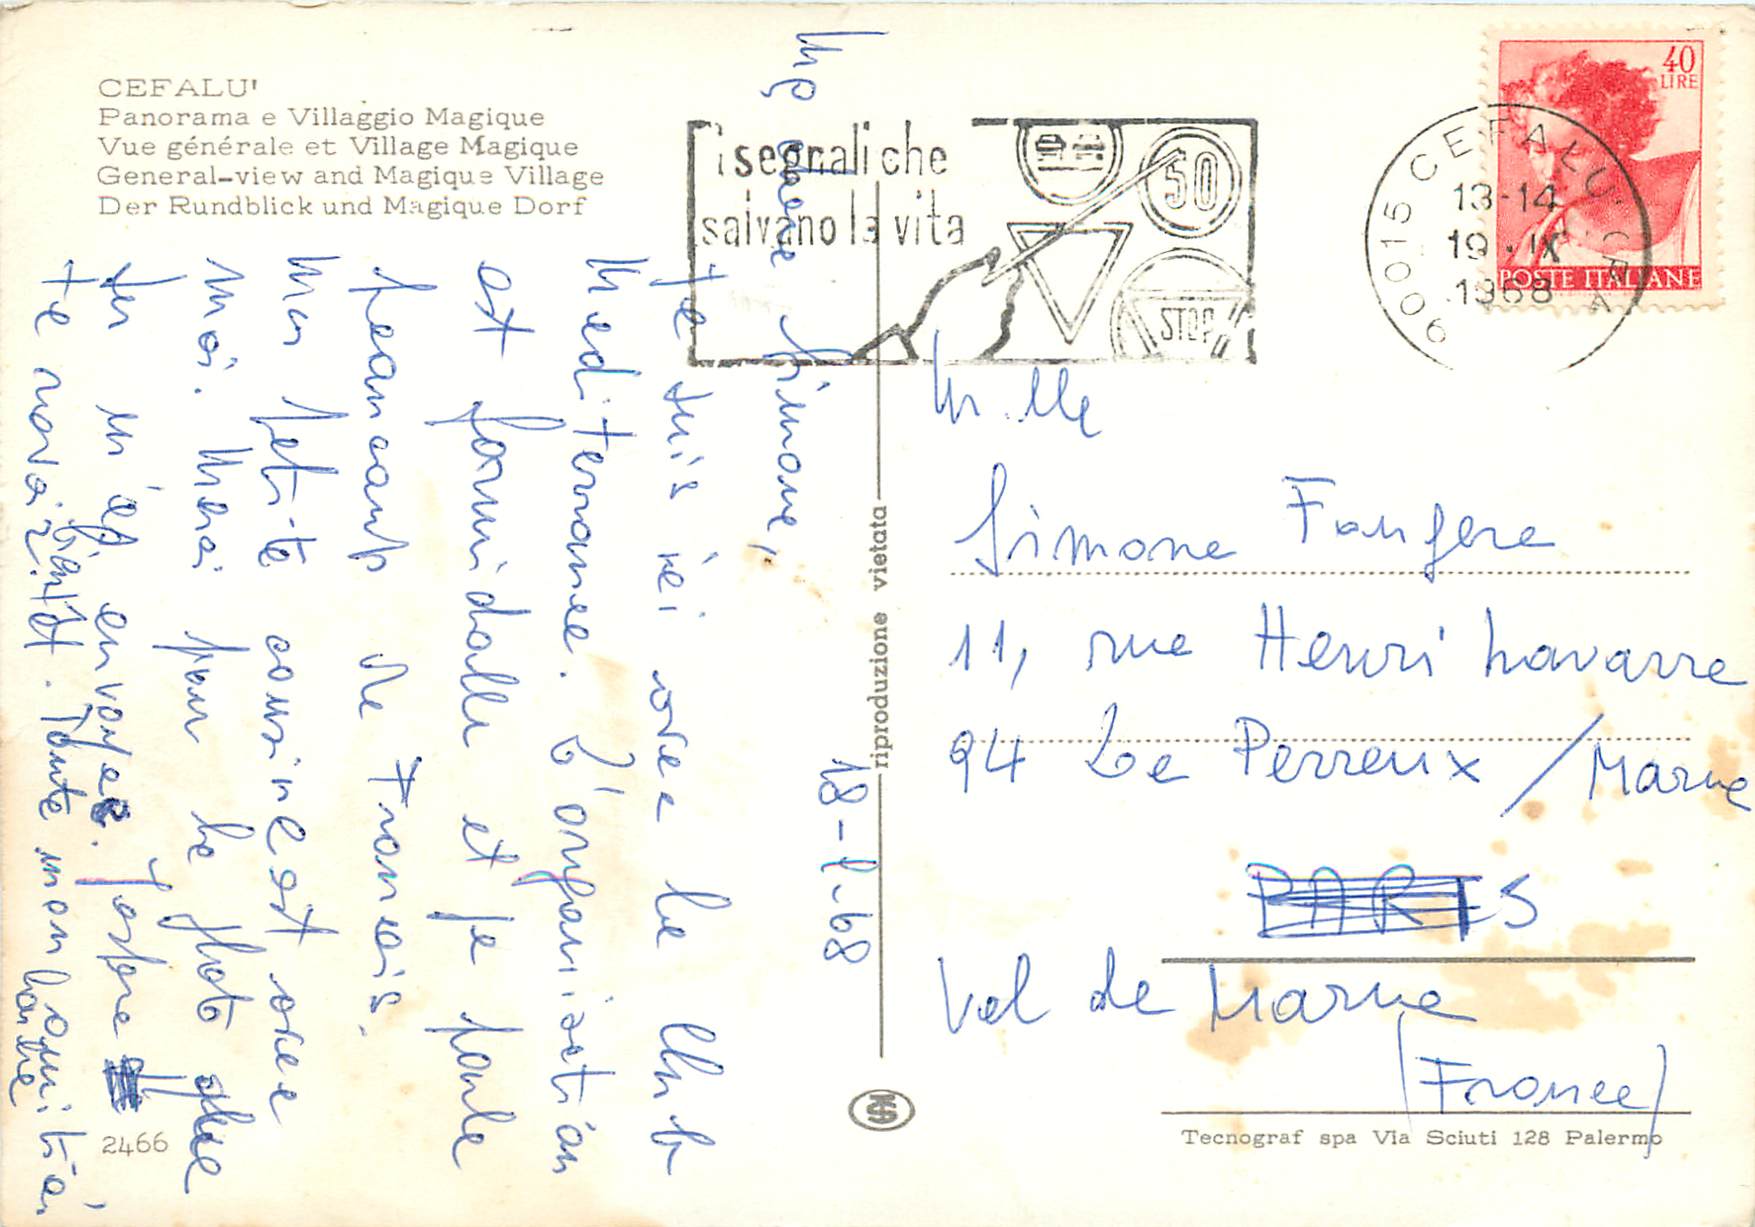 CEFALU'
Panorama e Villaggio Magique
Vue générale et Village Magique
General-view and Magique Village
Der Rundblick und Magique Dorf
i segnali che
salvano la vita
50
STOP
40
LIRE
POSTE ITALIANE
90015 CEFALU'
13-14
19 . IX
1968
Ma chère Simone,
Je suis ici avec le Club
Mediterranee. L'organisation
est formidable et je parle
beaucoup de Francais.
Ma petite cousine est avec
moi. Merci pour la photo que
tu m'as envoyée. J'espere
te revoir bientôt. Toute mon amitié,
18-9-68
riproduzione vietata
M.lle
Simone Faugere
11, rue Henri Navarre
94 Le Perreux / Marne
PARIS
Val de Marne
(France)
2466
Tecnograf spa Via Sciuti 128 Palermo